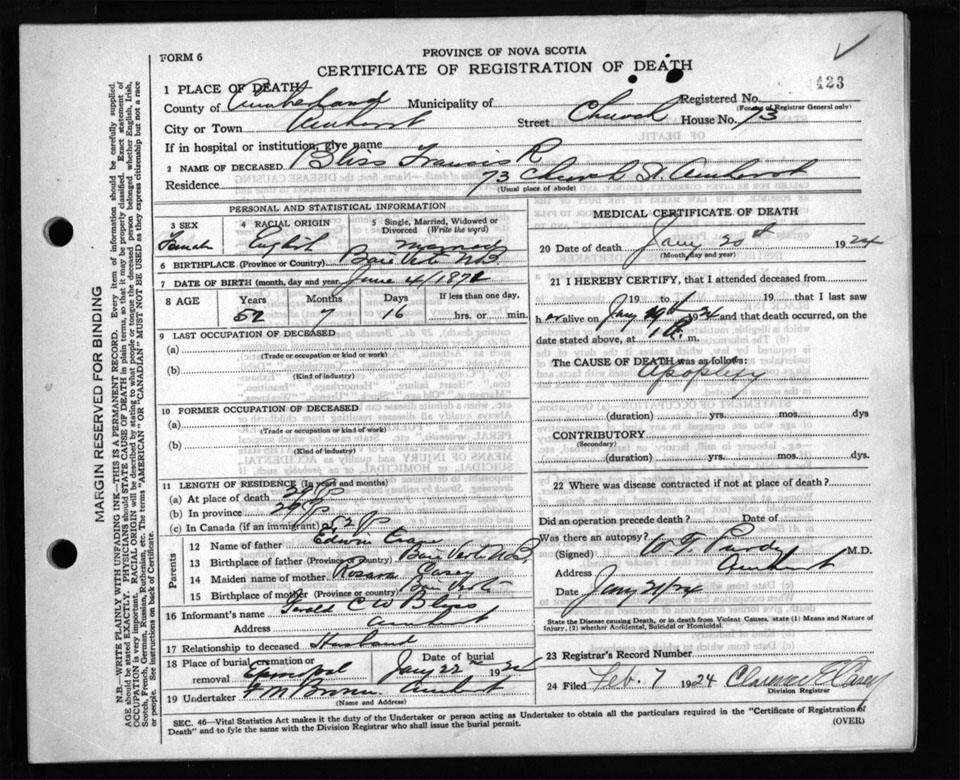 FORM 6
PROVINCE OF NOVA SCOTIA
CERTIFICATE OF REGISTRATION OF DEATH
423
1 PLACE OF DEATH
County of Cumberland Municipality of Registered No.
(For use of Registrar General only)
City or Town Amherst Street Church House No. 73
If in hospital or institution, give name
2 NAME OF DECEASED Bliss Francis R
Residence 73 Church St. Amherst
(Usual place of abode)
PERSONAL AND STATISTICAL INFORMATION
3 SEX 4 RACIAL ORIGIN 5 Single, Married, Widowed or Divorced (Write the word)
Female English married
6 BIRTHPLACE (Province or Country) Baie Verte N.B.
7 DATE OF BIRTH (month, day and year) June 4/1871
8 AGE Years Months Days If less than one day,
52 7 16 hrs. or min.
9 LAST OCCUPATION OF DECEASED
(a)
(Trade or occupation or kind or work)
(b)
(Kind of industry)
10 FORMER OCCUPATION OF DECEASED
(a)
(Trade or occupation or kind of work)
(b)
(Kind of Industry)
11 LENGTH OF RESIDENCE (In years and months)
(a) At place of death 29 y
(b) In province 29 y
(c) In Canada (if an immigrant) 52 y
Parents
12 Name of father Edwin
13 Birthplace of father (Province or country) Baie Verte N.B.
14 Maiden name of mother Casey
15 Birthplace of mother (Province or country) Baie Verte
16 Informant's name Gerald C W Bliss
Address Amherst
17 Relationship to deceased Husband
18 Place of burial, cremation or removal Date of burial
Jany 22 1924
19 Undertaker F M Brown Amherst
(Name and Address)
MEDICAL CERTIFICATE OF DEATH
20 Date of death Jany 20th 1924
(Month, day and year)
21 I HEREBY CERTIFY, that I attended deceased from
19 to 19 that I last saw
h er alive on Jany 19th 1924 and that death occurred, on the
date stated above, at m.
The CAUSE OF DEATH was as follows:
Apoplexy
(duration) yrs. mos. dys
CONTRIBUTORY
(Secondary)
(duration) yrs. mos. dys.
22 Where was disease contracted if not at place of death?
Did an operation precede death? Date of
Was there an autopsy?
(Signed) W. T. Purdy M.D.
Address Amherst
Date Jany 21/24
State the Disease causing Death, or in death from Violent Causes, state (1) Means and Nature of
Injury, (2) whether Accidental, Suicidal or Homicidal.
23 Registrar's Record Number
24 Filed Feb. 7 1924 Clarence E Casey
Division Registrar
SEC. 46—Vital Statistics Act makes it the duty of the Undertaker or person acting as Undertaker to obtain all the particulars required in the "Certificate of Registration of
Death" and to fyle the same with the Division Registrar who shall issue the burial permit.
(OVER)
MARGIN RESERVED FOR BINDING
N.B.—WRITE PLAINLY WITH UNFADING INK—THIS IS A PERMANENT RECORD. Every item of information should be carefully supplied.
AGE should be stated EXACTLY. PHYSICIANS should STATE CAUSE OF DEATH in plain terms, so that it may be properly classified. Exact statement of
OCCUPATION is very important. RACIAL ORIGIN will be described by stating to what people or tongue the deceased person belonged whether English, Irish,
Scotch, French, German, Russian, Ruthenian, etc. The terms "AMERICAN" OR "CANADIAN" MUST NOT BE USED as they express citizenship but not a race
or people. See instructions on back of Certificate.